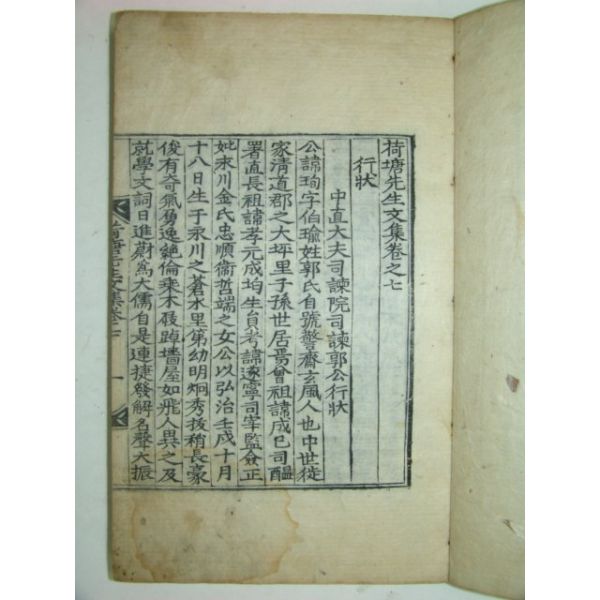 荷塘先生文集卷之七
行狀
中直大夫司諫院司諫郭公行狀
公諱珣字伯瑜姓郭氏自號警齋玄風人也中世徙
家淸道郡之大坪里子孫世居焉曾祖諱成己司醞
署直長祖諱孝元成均生員考諱遂寧司宰監僉正
妣永川金氏忠順衛哲端之女公以弘治壬戌十月
十八日生于永川之蒼水里第幼明炯秀拔稍長豪
俊有奇氣勇逸絶倫乘木屐踔墻屋如飛人異之及
就學文詞日進蔚爲大儒自是連捷發解名聲大振
荷塘先生文集卷七
一